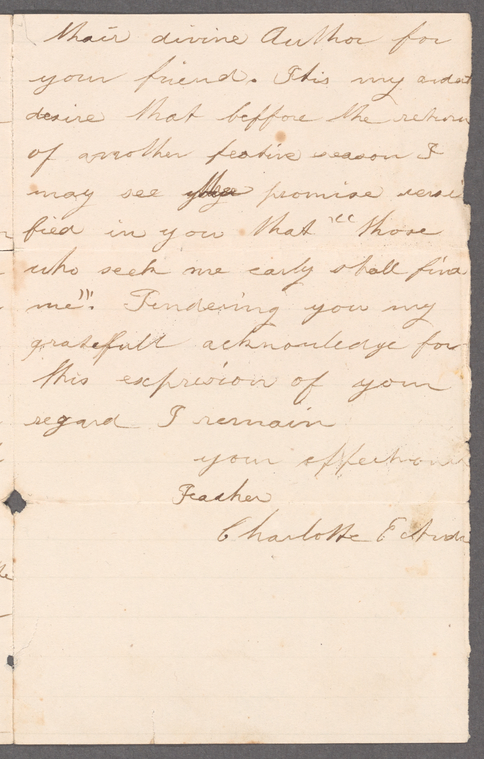 thair divine Author for
your friend. This my ardat
desire that beffore the return
of another festive season I
may see the promise versi
fied in you that "those
who seek me early shall find
me". Tendering you my
gratefull acknowledge for
this expresion of your
regard I remain
your affection
Teacher
Charlotte E